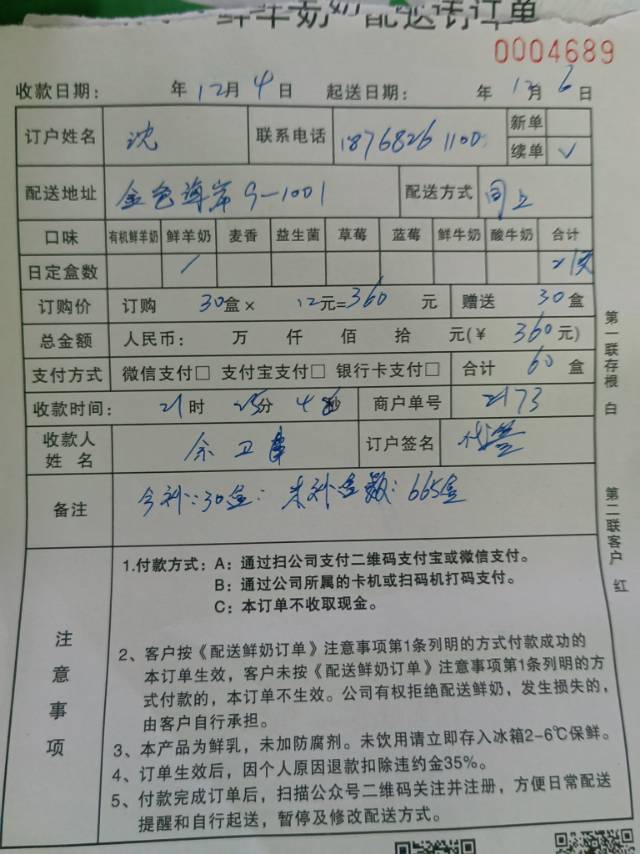 鲜羊奶 配送订单
0004689
收款日期： 年12月4日 起送日期： 年12月6日
订户姓名 沈 联系电话 18768261100 新单
续单 √
配送地址 金色海岸9-1001 配送方式 同上
口味 有机鲜羊奶 鲜羊奶 麦香 益生菌 草莓 蓝莓 鲜牛奶 酸牛奶 合计
日定盒数 1
订购价 订购 30盒× 12元=360 元 赠送 30盒
总金额 人民币： 万 仟 佰 拾 元(￥ 360元)
支付方式 微信支付□ 支付宝支付□ 银行卡支付□ 合计 60盒
收款时间： 21时 25分 48秒 商户单号 2173
收款人 姓名 余卫 订户签名 代签
备注 今补：30盒： 未补盒数：665盒
注意事项
1.付款方式：A：通过扫公司支付二维码支付宝或微信支付。
B：通过公司所属的卡机或扫码机打码支付。
C：本订单不收取现金。
2、客户按《配送鲜奶订单》注意事项第1条列明的方式付款成功的
本订单生效，客户未按《配送鲜奶订单》注意事项第1条列明的方
式付款的，本订单不生效。公司有权拒绝配送鲜奶，发生损失的，
由客户自行承担。
3、本产品为鲜乳，未加防腐剂。未饮用请立即存入冰箱2-6℃保鲜。
4、订单生效后，因个人原因退款扣除违约金35%。
5、付款完成订单后，扫描公众号二维码关注并注册，方便日常配送
提醒和自行起送，暂停及修改配送方式。
第一联存根 白
第二联客户 红